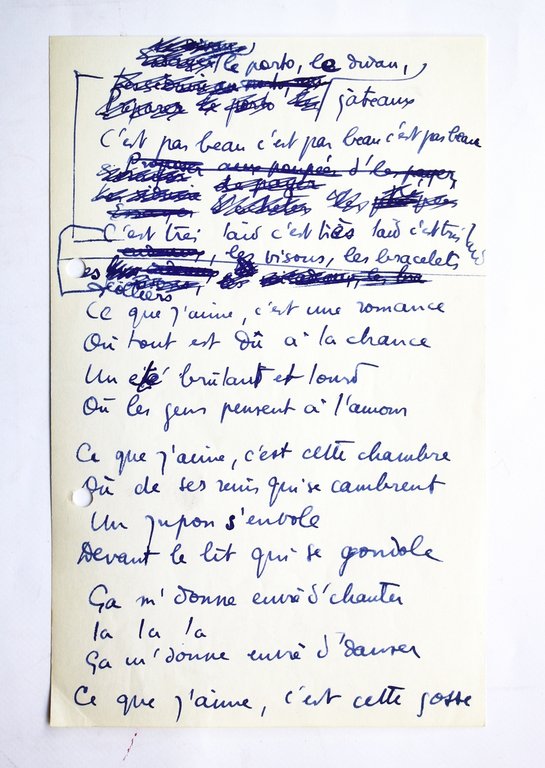 le porto, le divan,
gâteaux
C'est pas beau c'est pas beau c'est pas beau
C'est très laid c'est très laid c'est très laid
, les visons, les bracelets
les
colliers
Ce que j'aime, c'est une romance
Où tout est dû à la chance
Un été brûlant et lourd
Où les gens pensent à l'amour
Ce que j'aime, c'est cette chambre
Où de ses reins qui se cambrent
Un jupon s'envole
Devant le lit qui se gondole
Ça m'donne envie d'chanter
la la la
Ça m'donne envie d'danser
Ce que j'aime, c'est cette gosse